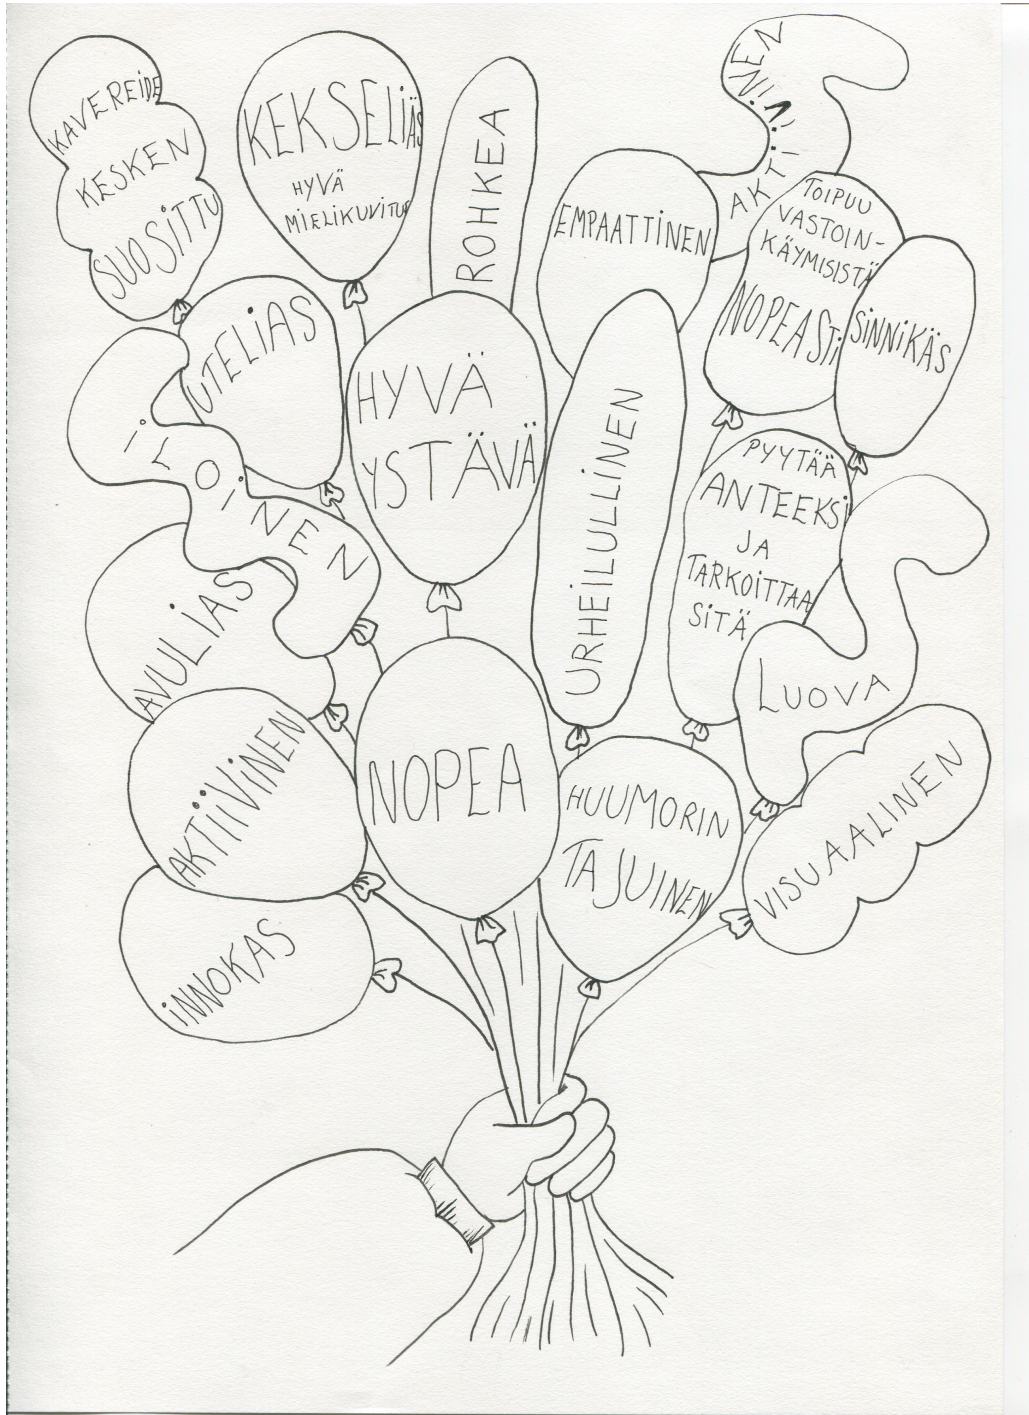 KAVEREIDE
KESKEN
SUOSITTU
KEKSELIÄS
HYVÄ
MIELIKUVITUS
ROHKEA
EMPAATTINEN
AKTIIVINEN
TOIPUU
VASTOIN-
KÄYMISISTÄ
NOPEASTI
SINNIKÄS
UTELIAS
HYVÄ
YSTÄVÄ
URHEILULLINEN
PYYTÄÄ
ANTEEKSI
JA
TARKOITTAA
SITÄ
ILOINEN
AVULIAS
LUOVA
AKTIIVINEN
NOPEA
HUUMORIN
TAJUINEN
VISUAALINEN
INNOKAS